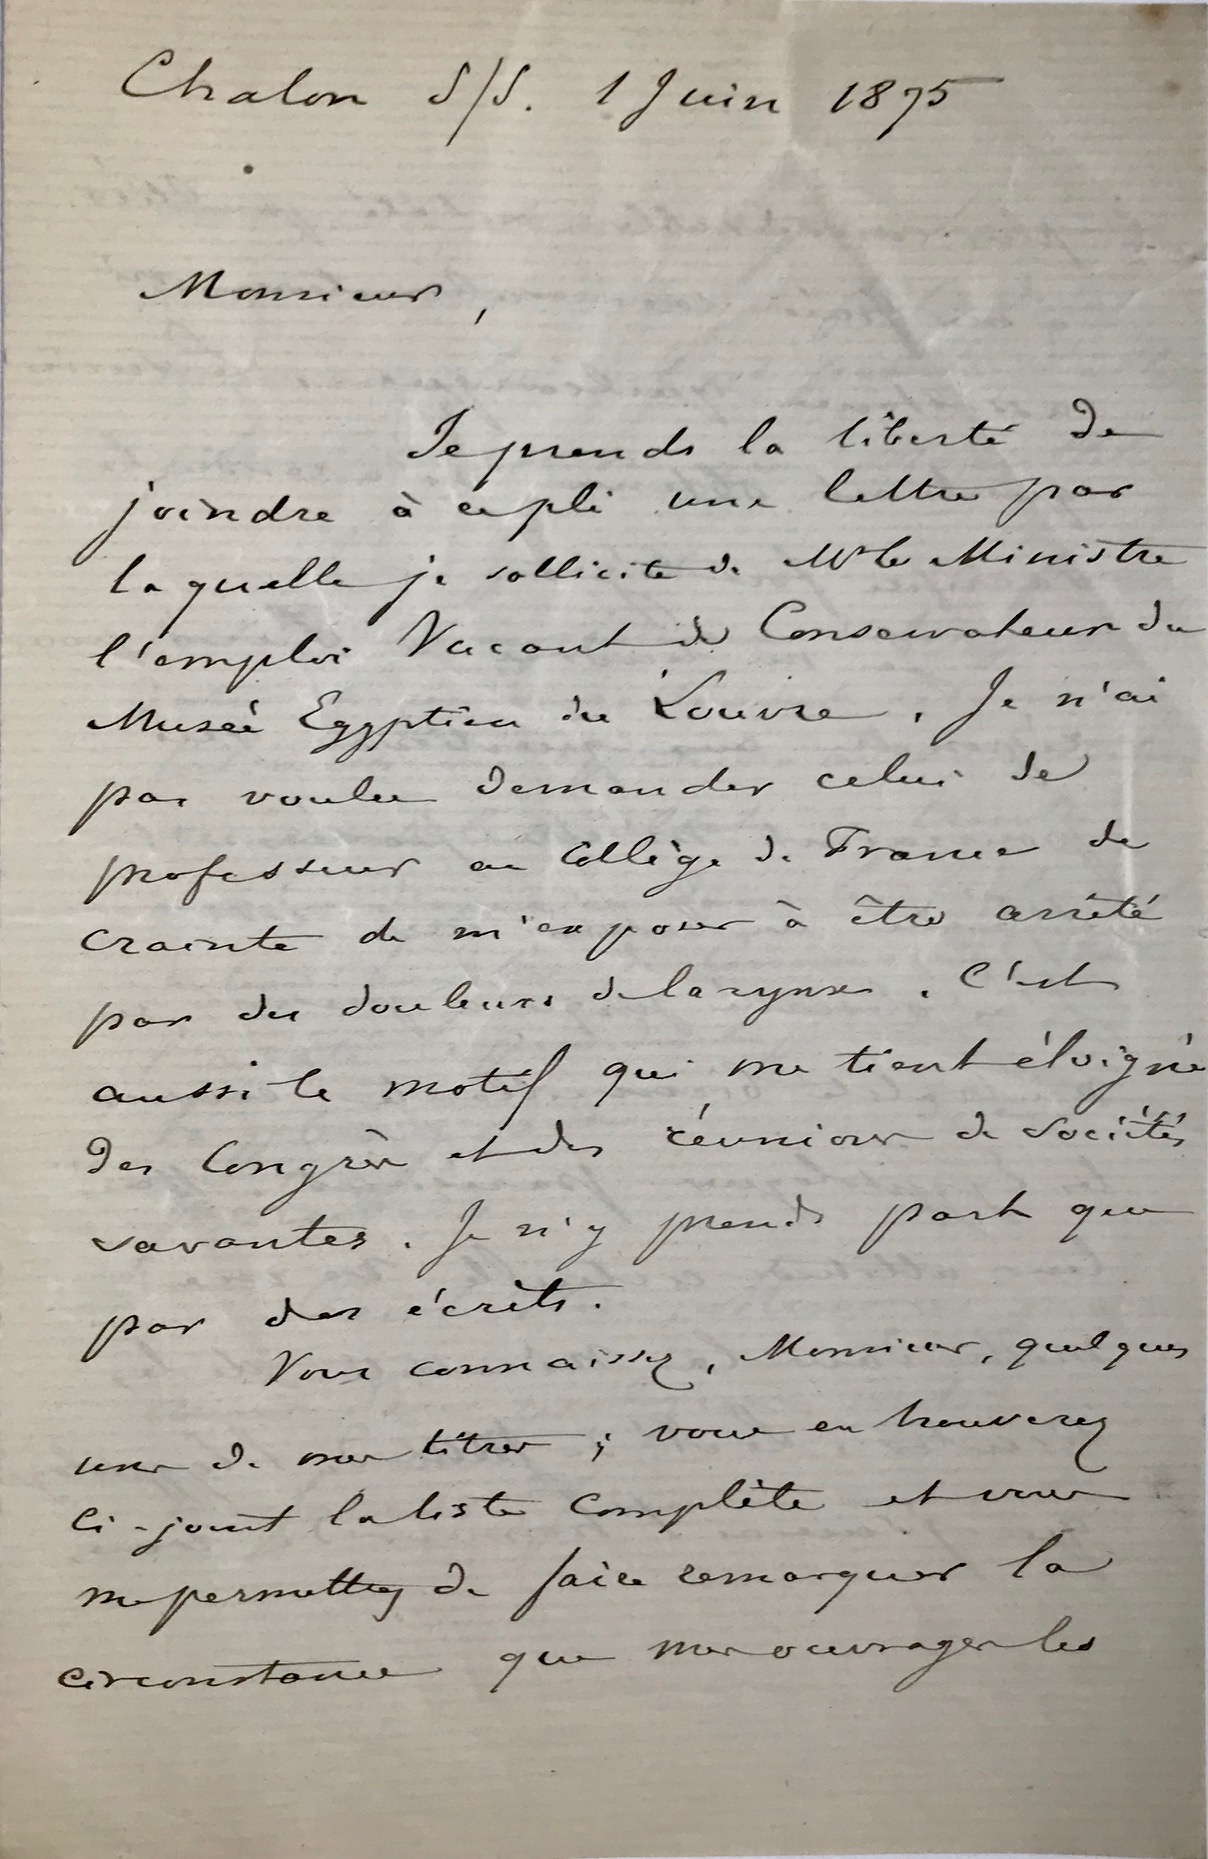 Chalon s/s. 1 Juin 1875
Monsieur,
Je prends la liberté de
joindre à ce pli une lettre par
laquelle je sollicite de Mr le Ministre
l'emploi Vacant de Conservateur du
Musée Egyptien du Louvre. Je n'ai
pas voulu demander celui de
professeur au Collège de France de
crainte de m'exposer à être arrêté
par des douleurs de larynx. C'est
aussi le motif qui me tient éloigné
des Congrès et des réunions de Sociétés
savantes. Je n'y prends part que
par des écrits.
Vous connaissez, Monsieur, quelques
uns de mes titres ; vous en trouverez
Ci-joint la liste Complète et vous
me permettrez de faire remarquer la
circonstance que mes ouvrages les